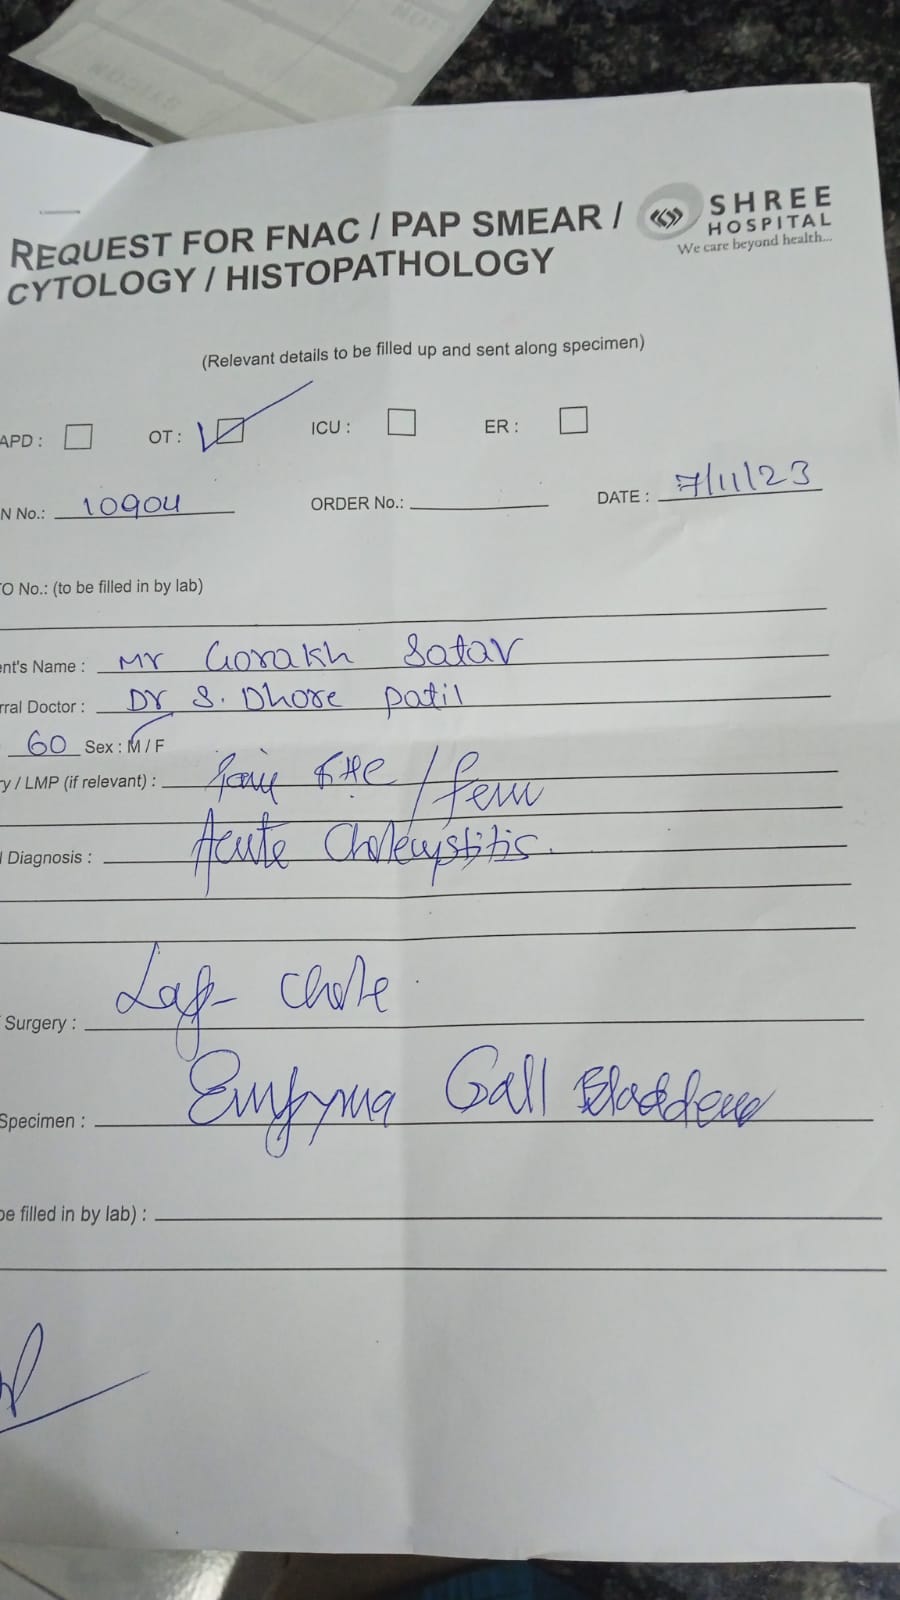 REQUEST FOR FNAC / PAP SMEAR /
CYTOLOGY / HISTOPATHOLOGY
SHREE
HOSPITAL
We care beyond health...
(Relevant details to be filled up and sent along specimen)
APD : OT : ICU : ER :
N No.: 10904 ORDER No.: DATE : 7/11/23
O No.: (to be filled in by lab)
ent's Name : Mr Gorakh Satav
rral Doctor : Dr S. Dhore patil
60 Sex : M / F
y / LMP (if relevant) : Pain
Diagnosis : Acute Cholecystitis.
Surgery : Lap Chole
Specimen : Empyma Gall Bladder
be filled in by lab) :